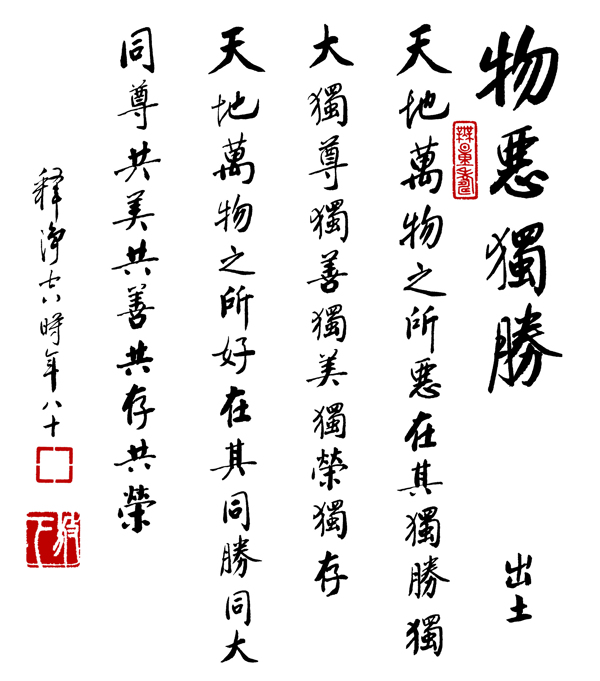 物惡獨勝
出土
天地萬物之所惡在其獨勝獨
大獨尊獨善獨美獨榮獨存
天地萬物之所好在其同勝同大
同尊共美共善共存共榮
釋淨空時年八十